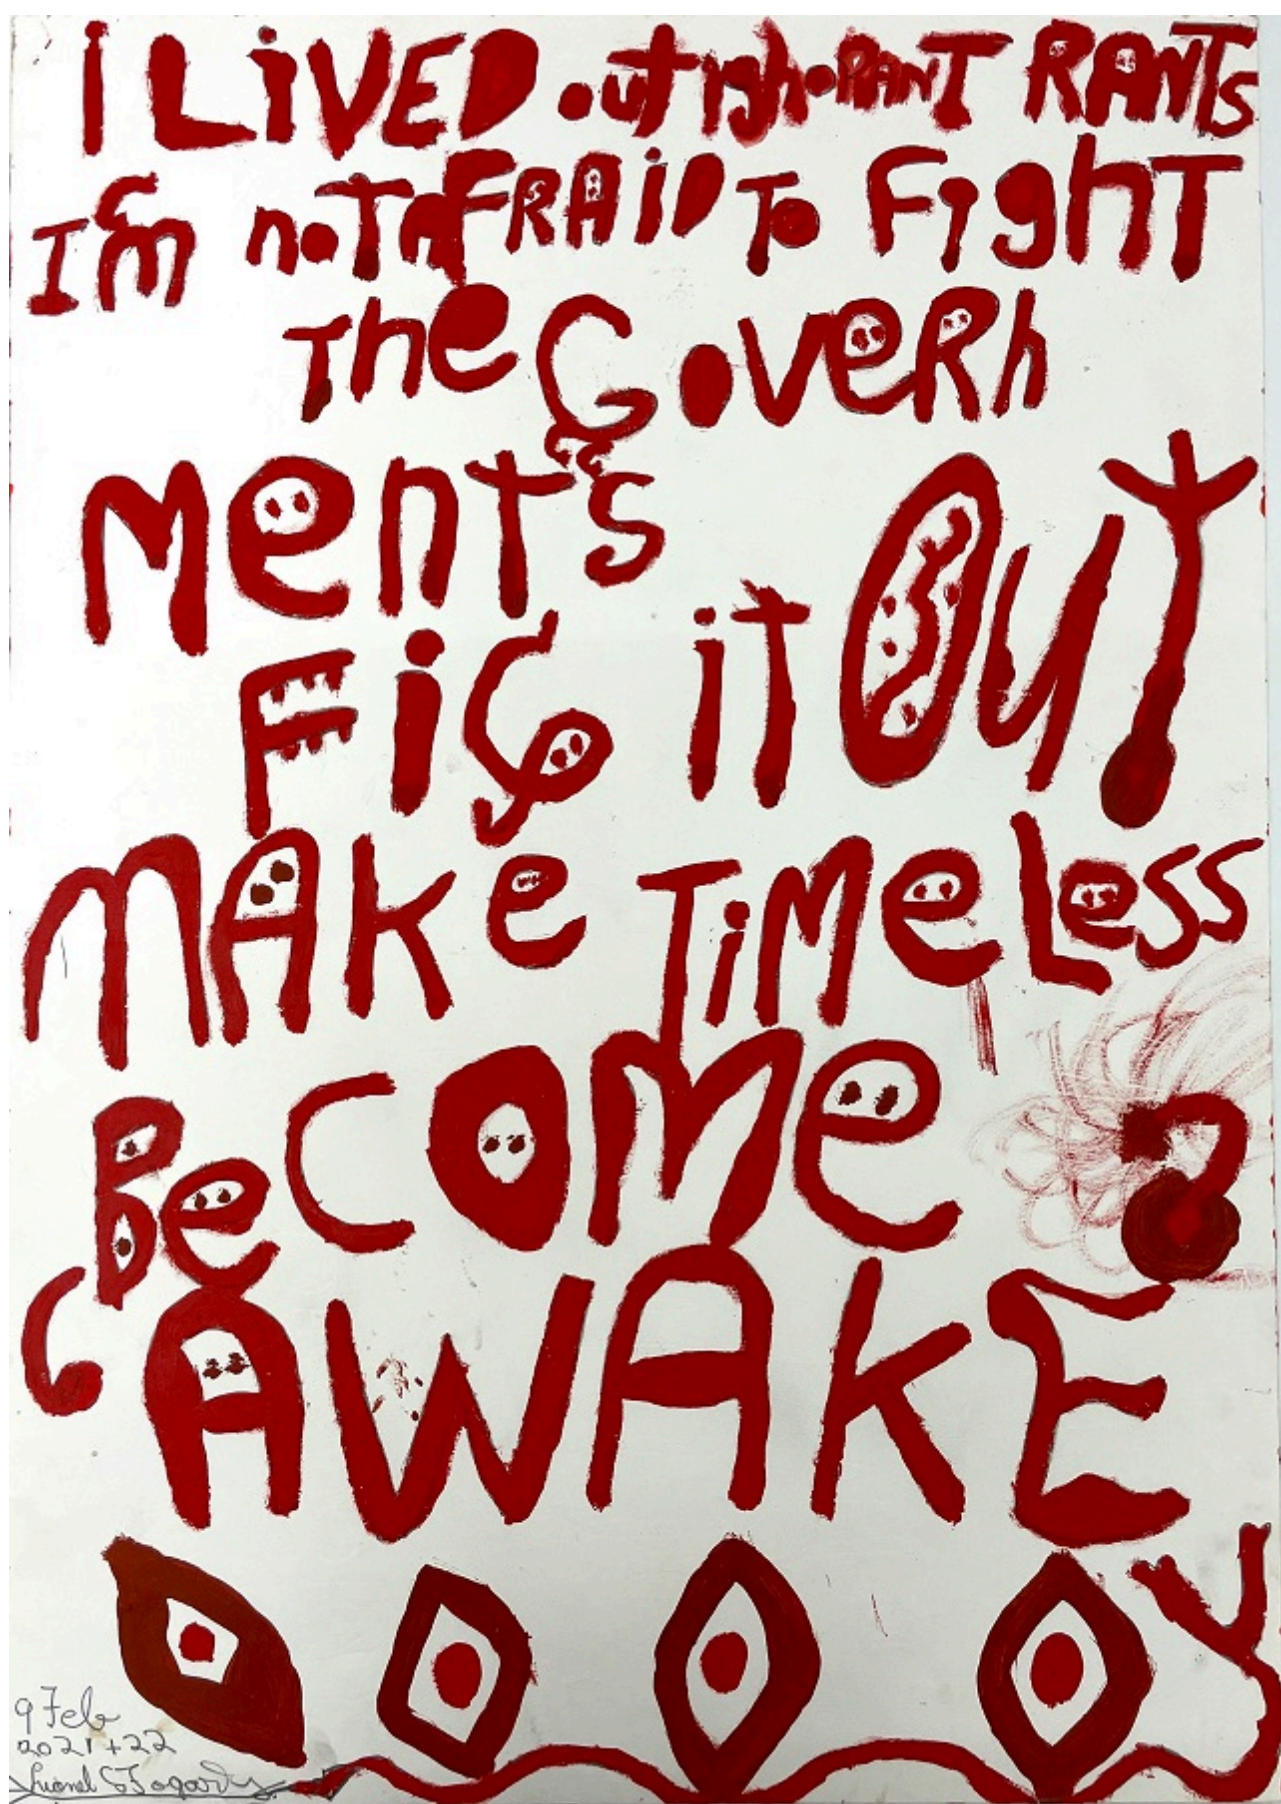 i LiVED out ighoRANT RANTS
I'm noT AFRAiD To FighT
The GoveRh
Ment's
Fig iT OUT
MAKe TiMeLess
BeCOMe ?
AWAKE
9 Feb
2021+22
Lionel G Fogarty